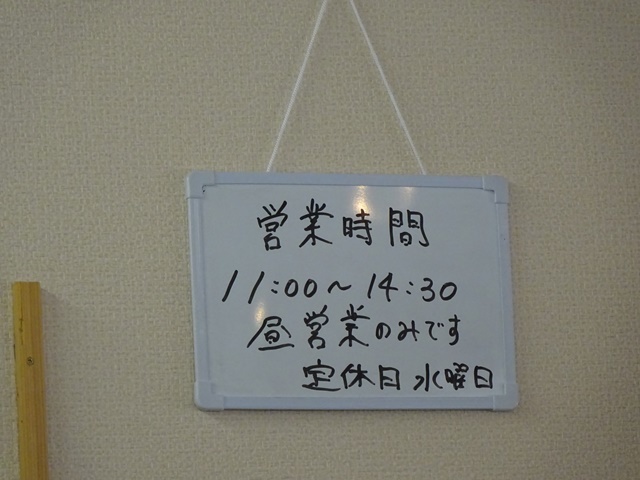 営業時間
11:00～14:30
昼営業のみです
定休日 水曜日